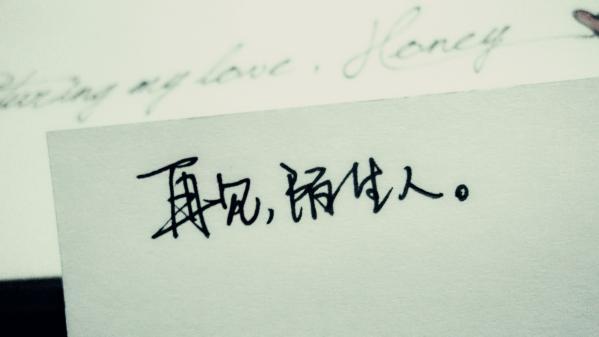 during my love. Honey
再见,陌生人。